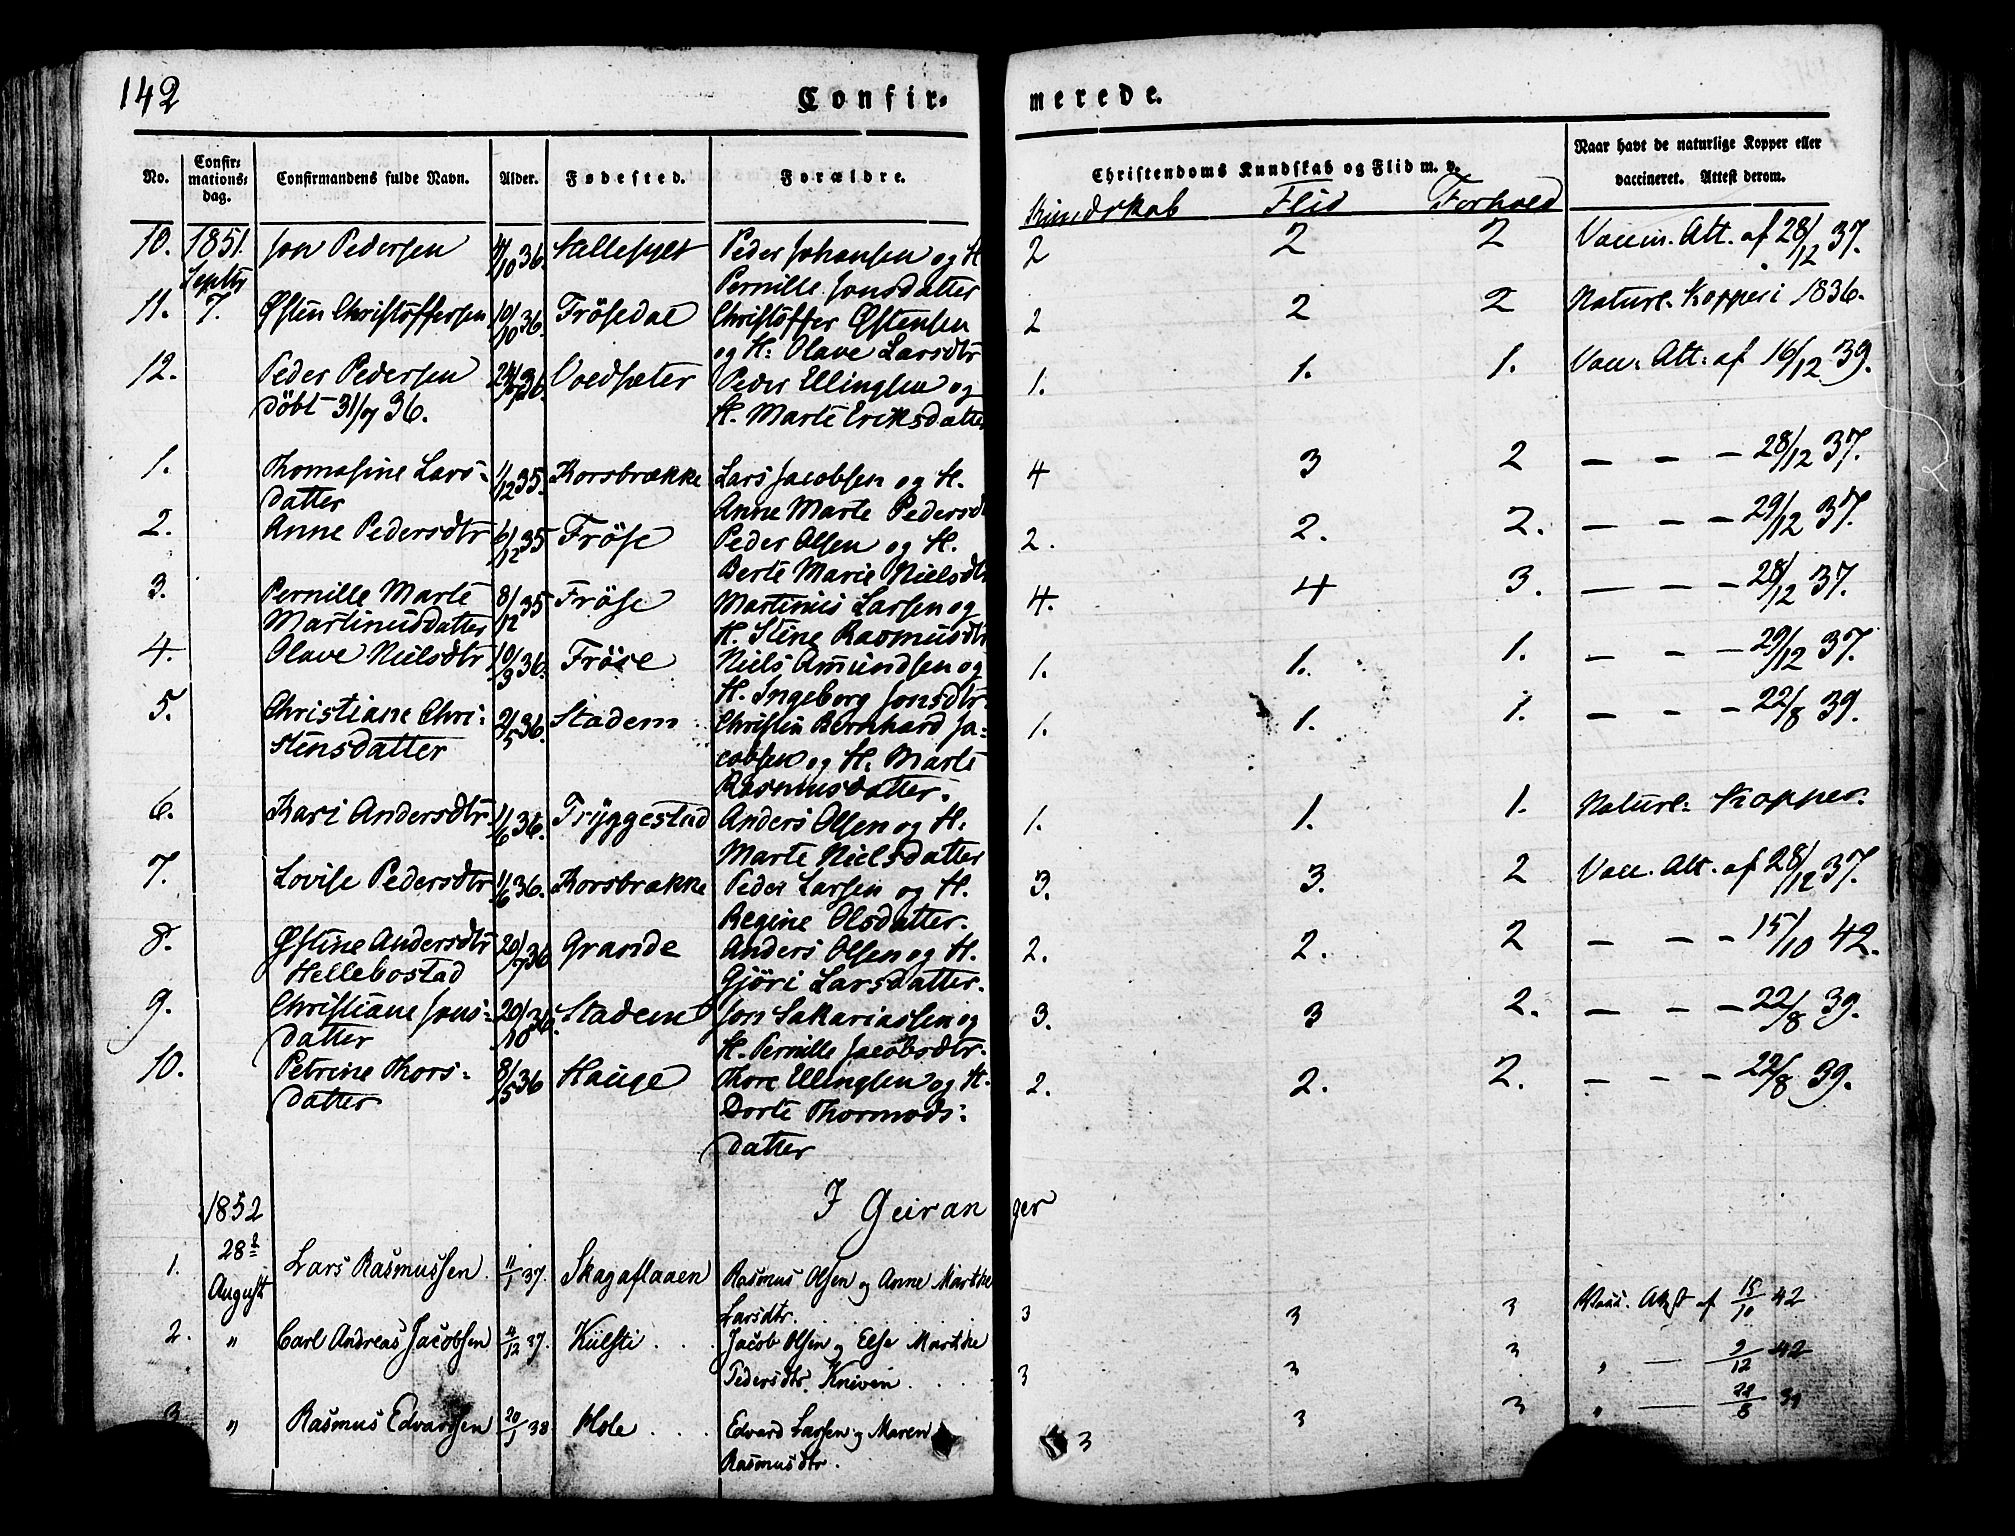 142
Confirmerede.
No. Confirmationsdag. Confirmandens fulde Navn. Alder. Fødested. Forældre. Christendoms Kundskab og Flid m. v. Naar havt de naturlige Kopper eller vaccineret. Attest derom.
Kundskab Flid Forhold
10. 1851. Jon Pedersen 4/10 36. Hellesylt Peder Johansen og H. 2 2 2 Vaccin. Att. af 28/12 37.
Septbr Pernille Jonsdatter
11. 7. Østen Christoffersen 10/10 36 Frösedal Christoffer Østensen 2 2 2 Naturl. Kopper i 1836.
og H: Olave Larsdtr
12. Peder Pedersen 24/7 36 Voedsæter Peder Ellingsen og 1. 1. 1. Vacc: Att: af 16/12 39.
döbt 31/7 36. H. Marte Eriksdatter
1. Thomasine Lars- 1/12 35. Korsbrække Lars Jacobsen og H. 4 3 2 — — — 28/12 37.
datter Anne Marte Pedersd
2. Anne Pedersdtr 6/12 35 Fröse Peder Olsen og H. 2. 2. 2. — — — 29/12 37.
Berte Marie Nielsdtr
3. Pernille Marte 8/12 35 Fröse Martinus Larsen og 4. 4 3. — — — 28/12 37.
Martinusdatter H. Stine Rasmusdtr
4. Olave Nielsdtr 10/3 36. Fröse Niels Amundsen og 1. 1. 1. — — — 29/12 37.
H. Ingeborg Jonsdtr.
5. Christiane Chri- 2/5 36. Stadem Christen Bernhard Ja- 1. 1. 1. — — — 22/8 39.
stensdatter cobsen og H. Marte
Rasmusdatter.
6. Kari Andersdtr 1/6 36. Tryggestad Anders Olsen og H. 1. 1. 1. Naturl: Kopper.
Marte Nielsdatter
7. Lovise Pedersdtr 1/6 36. Korsbrække Peder Larsen og H. 3. 3. 2 Vacc. Att. af 28/12 37.
Regine Olsdatter.
8. Østine Andersdtr 20/7 36 Grande Anders Olsen og H. 2. 2. 2 — — — 15/10 42.
Hellebostad Gjöri Larsdatter.
9. Christiane Jons- 20/10 36. Stadem Jon Sakariassen og 3. 3 2. — — — 22/8 39.
datter H. Pernille Jacobsdtr.
10. Petrine Thors- 8/5 36 Hauge Thore Ellingsen og H. 2. 2. 2. — — — 22/8 39.
datter Dorte Thormods-
datter
1852 I Geiranger
28de
1. August Lars Rasmussen 11/1 37. Skagaflaaen Rasmus Olsen og Anne Marthe
Larsdtr. 3 3 3 Vacc. Attst af 15/10 42
2. " Carl Andreas Jacobsen 4/12 37. Külsti . . . Jacob Olsen og Else Marthe
Pedersdtr. Kniven . . 3 3 3 " — 9/12 42
3 " Rasmus Edvardsen 20/1 38 Hole . . . Edvard Larsen og Maren 3 3 3 " — /8 39
Rasmusdtr.